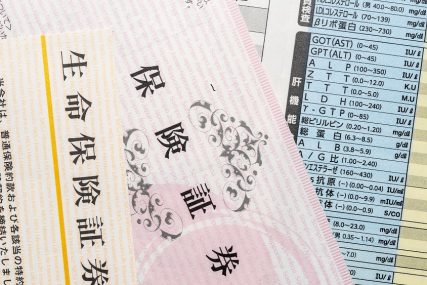 生命保険証券
保険証
券
当会社は、普通保険約款および各該当の特約
を締結いたしまし
LDLコレステロール (70~139) mg/dl
βリポ蛋白 (230~730) mg/dl
肝機能
GOT(AST) (0~45) IU/ℓ
GPT(ALT) (0~45) IU/ℓ
ALP (100~350) IU/ℓ
ZTT (2.0~12.0) K.U
TTT (0.0~5.0) M.U
LDH (100~240) IU/ℓ
γ-GTP (0~85) IU/ℓ
総ビリルビン (0.20~1.20) mg/dl
総蛋白 (6.3~8.5) g/dl
ALB (3.8~5.9) g/dl
A/G比 (1.00~2.40)
エステラーゼ (160~430) IU/ℓ
s抗原 (-) (0.00~0.04) IU/mℓ
s抗体 (-) (0.0~9.9) mIU/mℓ
抗体 (-) (0.0~0.9) S/CO
(8.0~23.0) mg/dl
男 (0.35~1.14) mg/dl